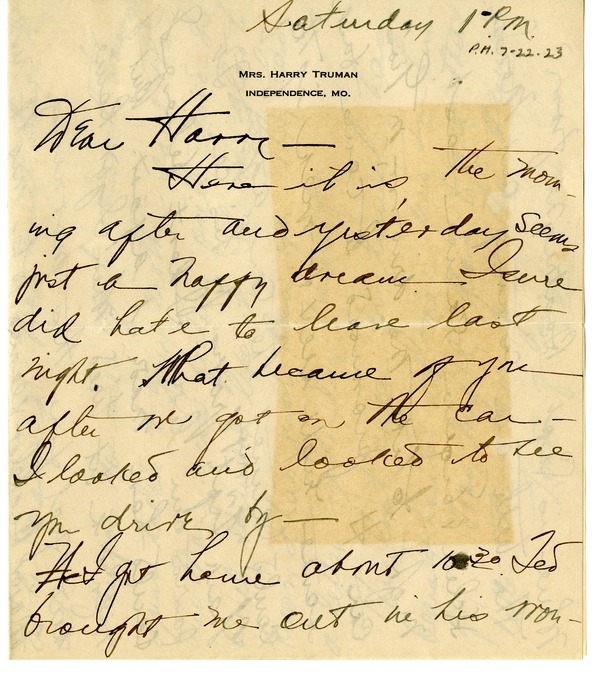 Saturday 1 P.M.
P.M. 7-22-23
MRS. HARRY TRUMAN
INDEPENDENCE, MO.
Dear Harry —
Here it is the morn-
ing after and yesterday seems
just a happy dream. I sure
did hate to leave last
night. What became of you
after we got on the car —
I looked and looked to see
you drive by —
got home about 10:30. Ted
brought me out in his won-